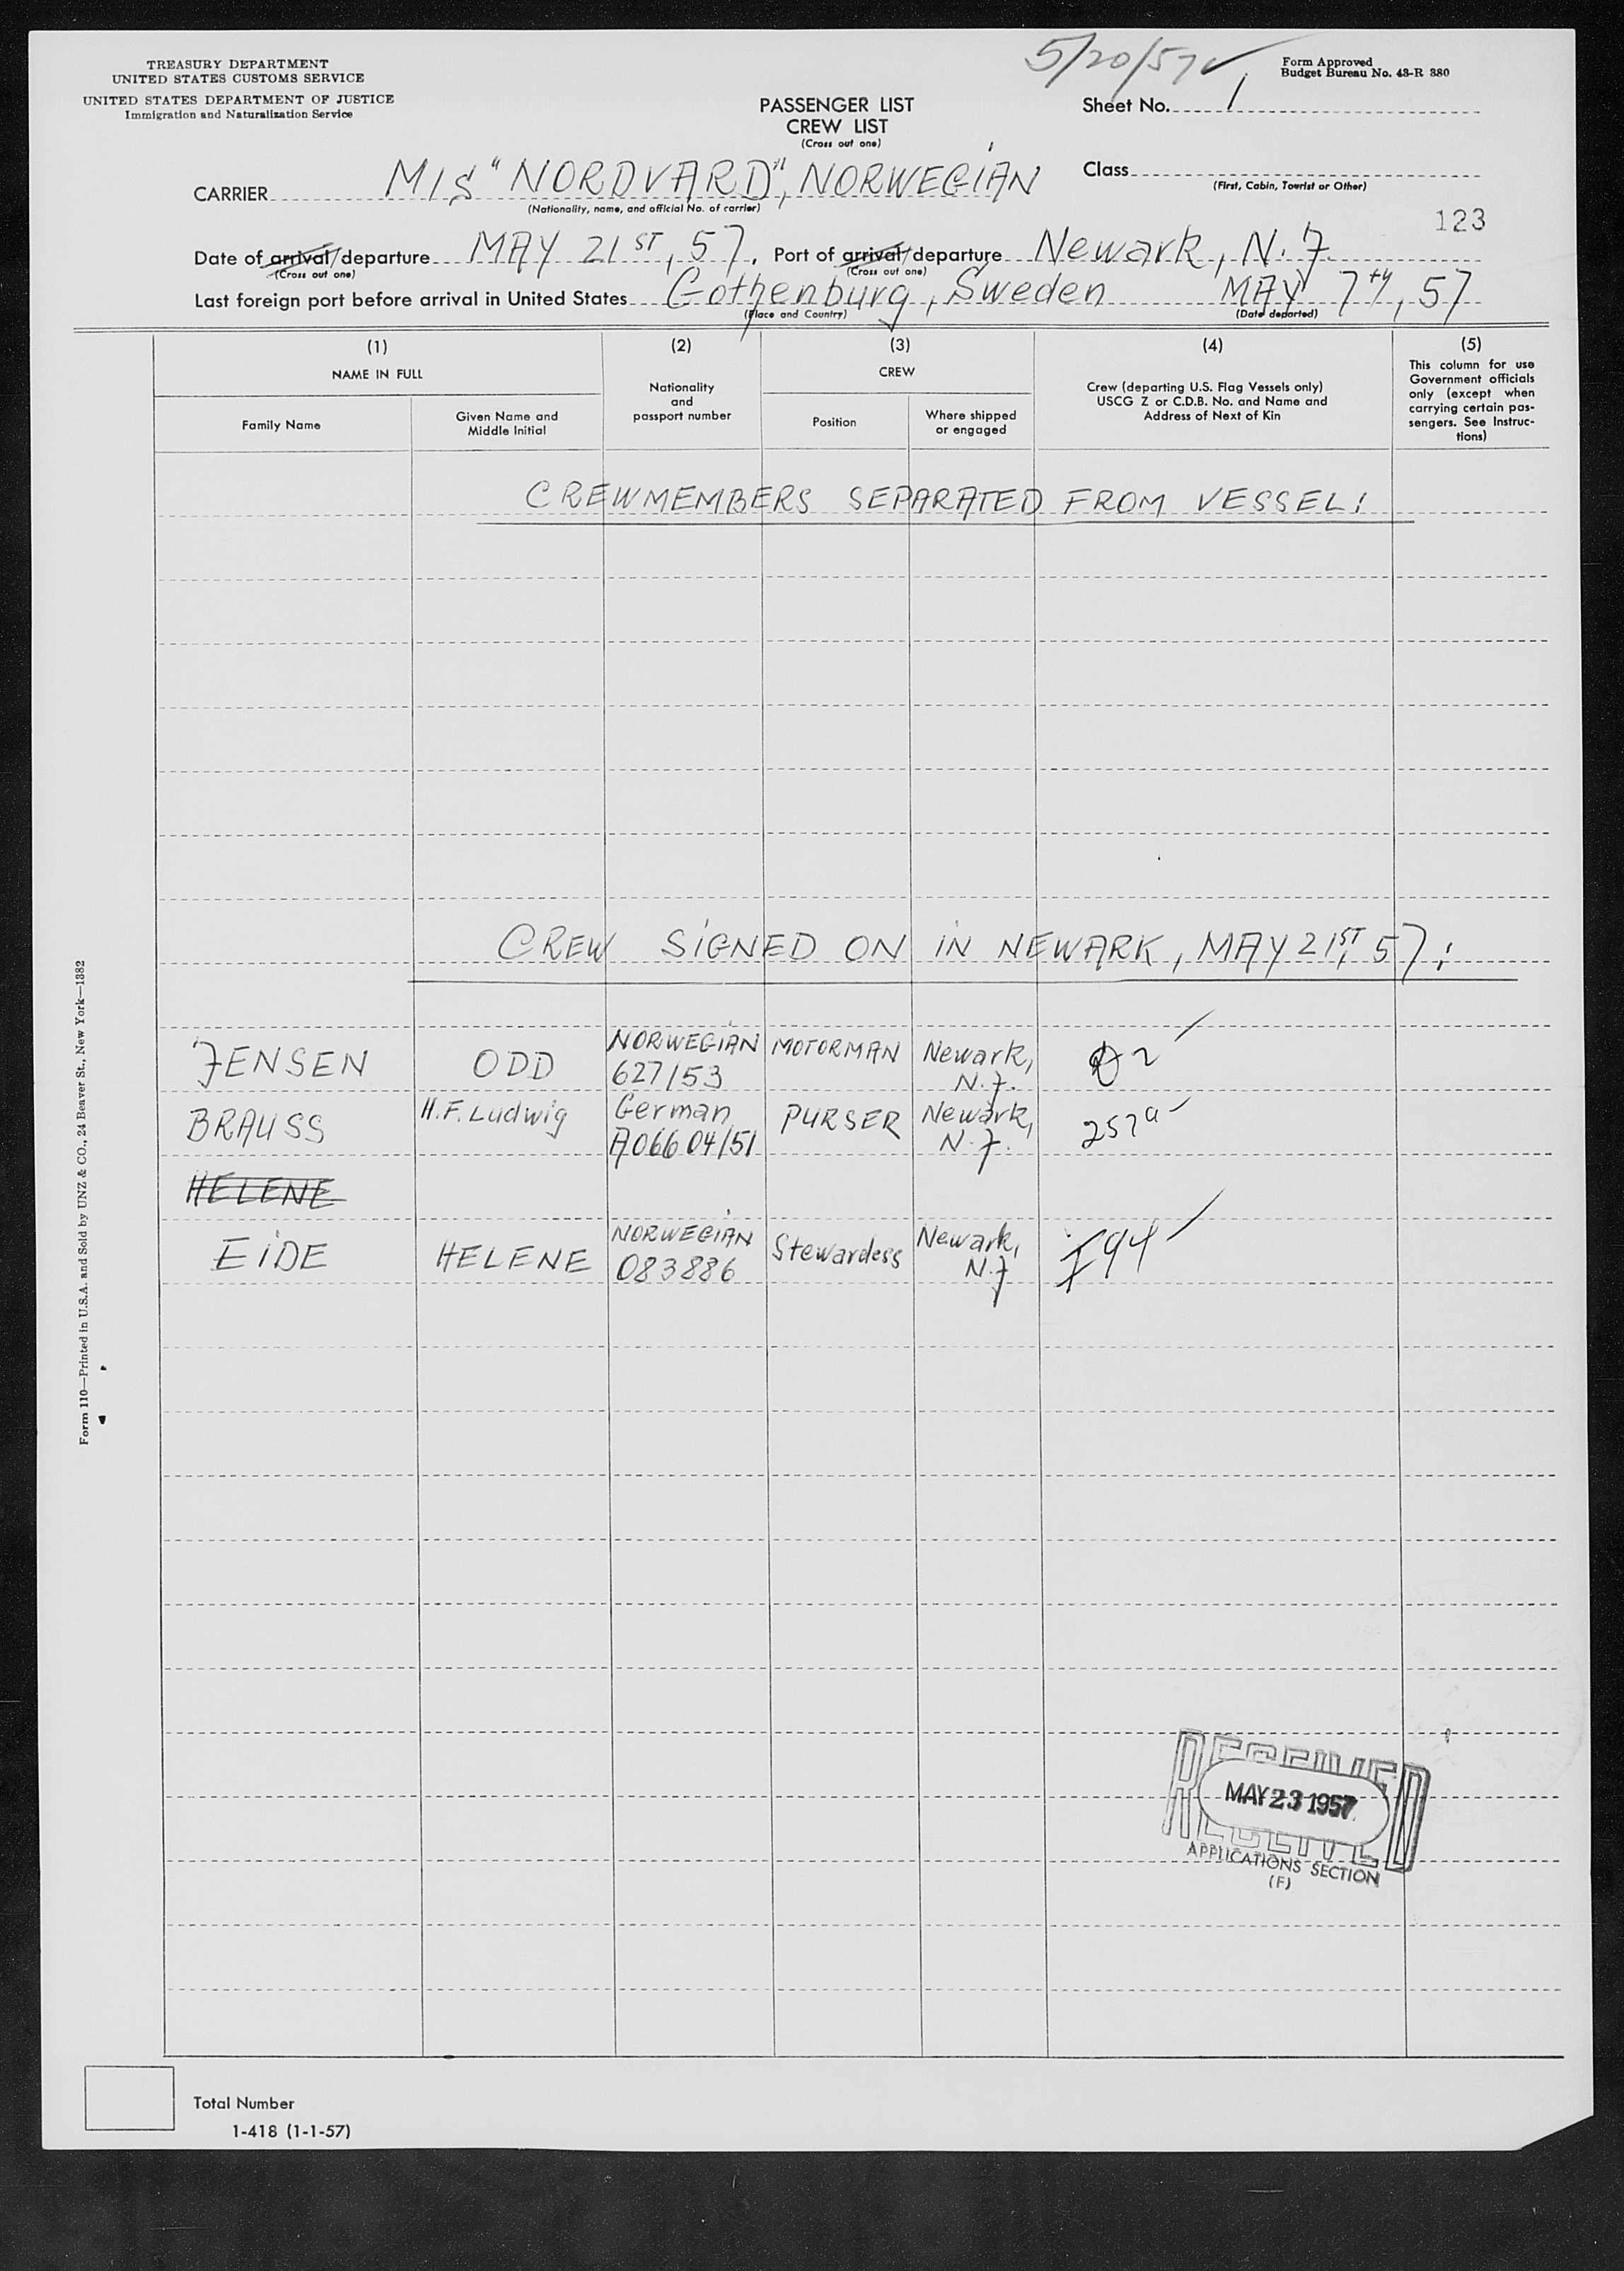 5/20/57
TREASURY DEPARTMENT
UNITED STATES CUSTOMS SERVICE
UNITED STATES DEPARTMENT OF JUSTICE
Immigration and Naturalization Service
Form Approved
Budget Bureau No. 43-R 380
PASSENGER LIST
CREW LIST
(Cross out one)
Sheet No. 1
CARRIER M/S "NORDVARD", NORWEGIAN
(Nationality, name, and official No. of carrier)
Class
(First, Cabin, Tourist or Other)
123
Date of arrival/departure MAY 21ST, 57. Port of arrival/departure Newark, N.J.
(Cross out one) (Cross out one)
Last foreign port before arrival in United States Gothenburg, Sweden MAY 7th, 57
(Place and Country) (Date departed)
(1) (2) (3) (4) (5)
NAME IN FULL
Family Name
Given Name and
Middle Initial
Nationality
and
passport number
CREW
Position
Where shipped
or engaged
Crew (departing U.S. Flag Vessels only)
USCG Z or C.D.B. No. and Name and
Address of Next of Kin
This column for use
Government officials
only (except when
carrying certain pas-
sengers. See Instruc-
tions)
CREWMEMBERS SEPARATED FROM VESSEL:
CREW SIGNED ON IN NEWARK, MAY 21ST, 57:
JENSEN ODD NORWEGIAN 627/53 MOTORMAN Newark, N.J.
BRAUSS H.F. Ludwig German A06604/51 PURSER Newark, N.J. 257a
HELENE
EIDE HELENE NORWEGIAN 083886 Stewardess Newark, N.J 794
RECEIVED
MAY 23 1957
RECEIVED
APPLICATIONS SECTION
(F)
Form 110—Printed in U.S.A. and Sold by UNZ & CO., 24 Beaver St., New York—1382
Total Number
1-418 (1-1-57)